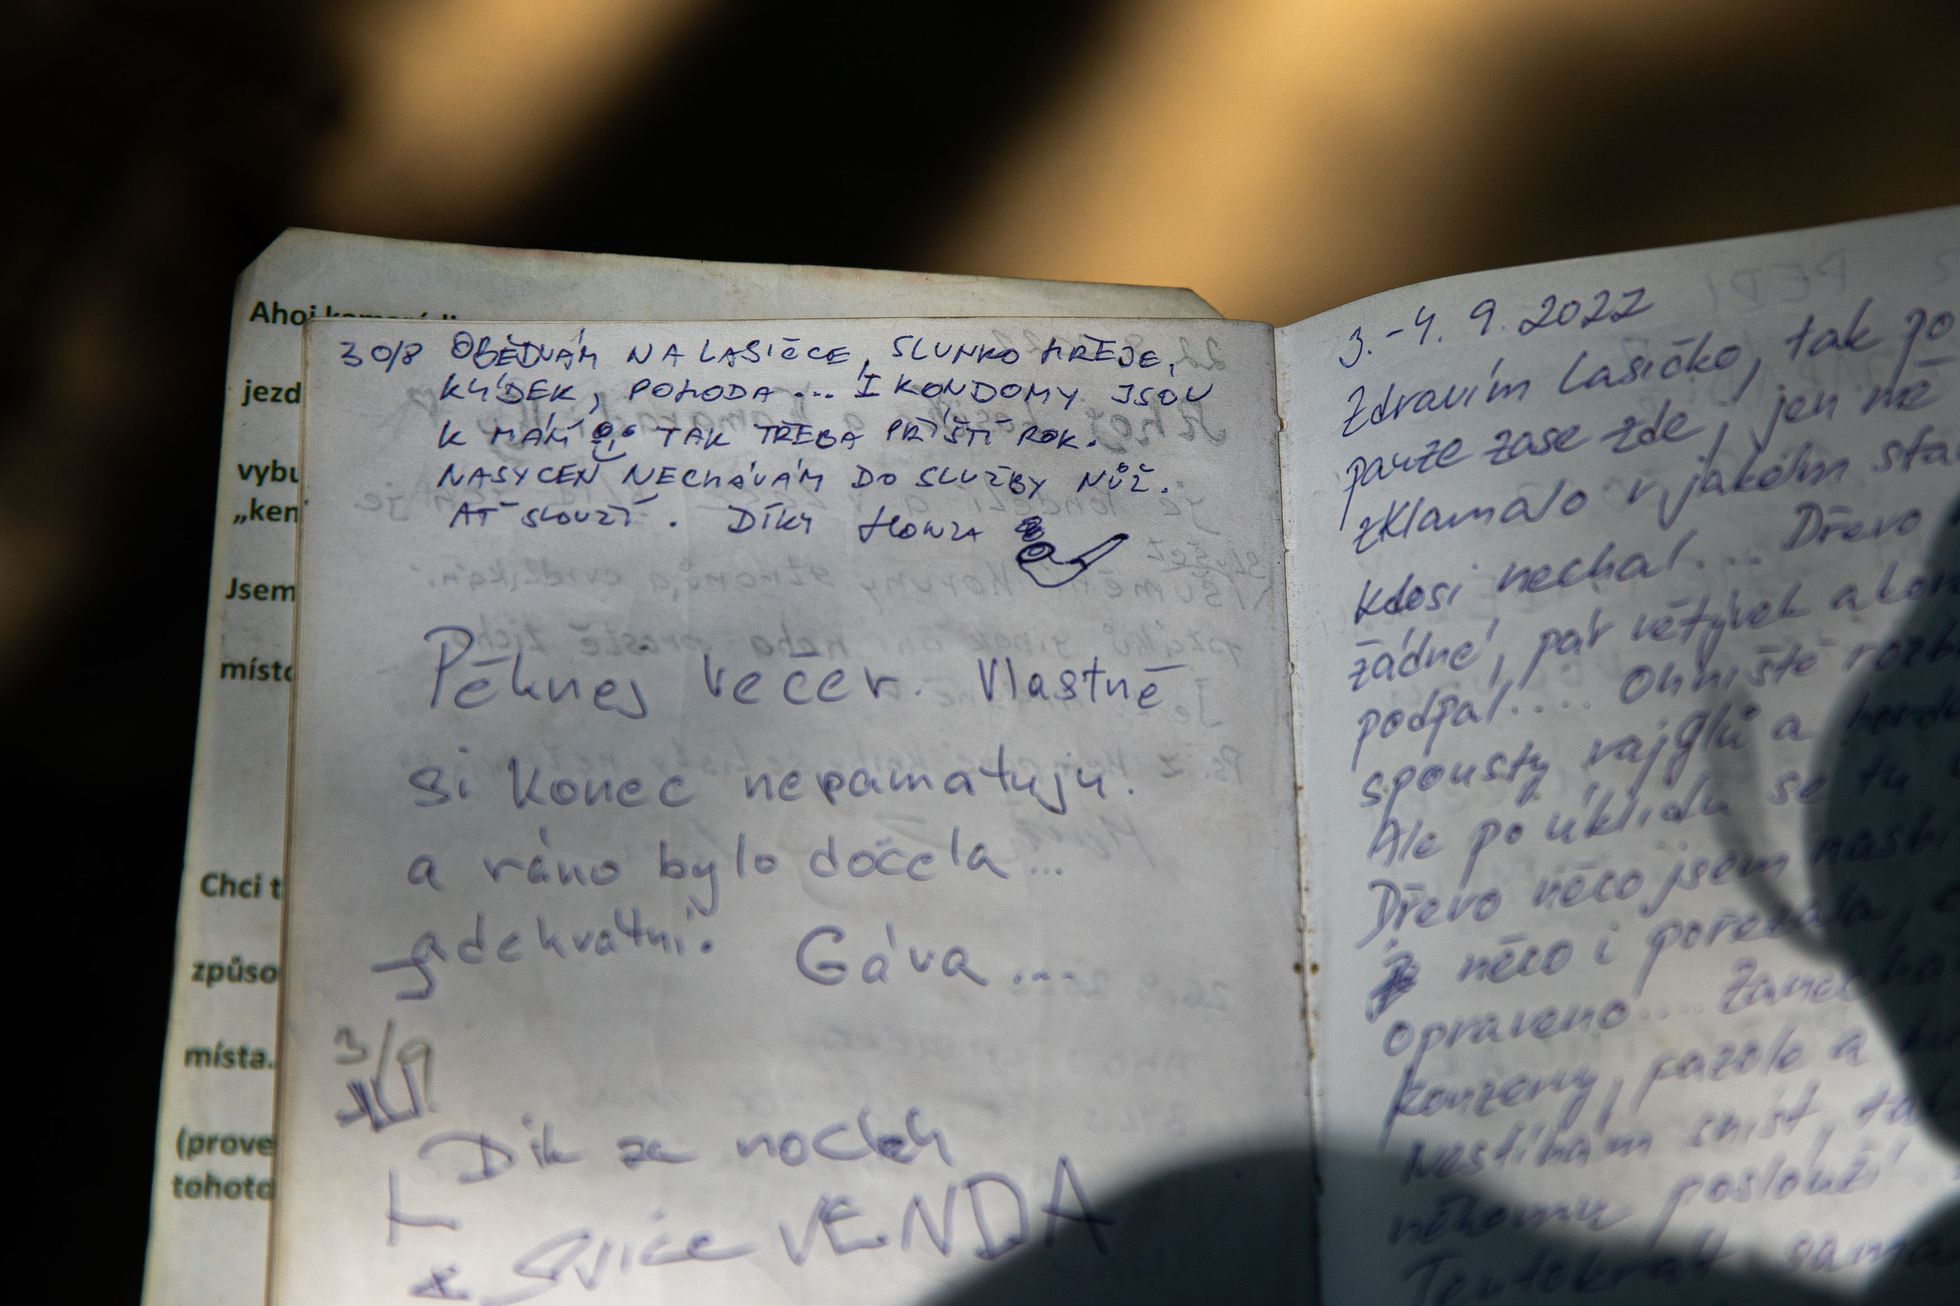 Ahoj
jezd
vybu
„ken
Jsem
místo
Chci t
způso
místa.
(prove
tohoto
30/8 OBĚDVÁM NA LASIČCE, SLUNKO HŘEJE,
KLÍDEK, POHODA... I KONDOMY JSOU
K MÁNÍ TAK TŘEBA PŘÍŠTÍ ROK.
NASYCEN NECHÁVÁM DO SLUŽBY NŮŽ.
AŤ SLOUŽÍ. DÍKY HONZA
Pěknej večer. Vlastně
si konec nepamatuju.
a ráno bylo docela...
adekvátní. Gáva....
3/9
Dík za nocleh
Svíce VENDA
3.-4. 9. 2022
Zdravím Lasičko, tak po
pauze zase zde, jen mě
zklamalo v jakém sta
kdosi nechal... Dřevo
žádné, pár větývek a
podpal.... Ohniště rozb
spousty vajglů a
Ale po úklidu se tu
Dřevo něco jsem
něco i pořezala,
opraveno....
konzervy, a
nestíhám sníst,
někomu poslouží
Tentokrát sama